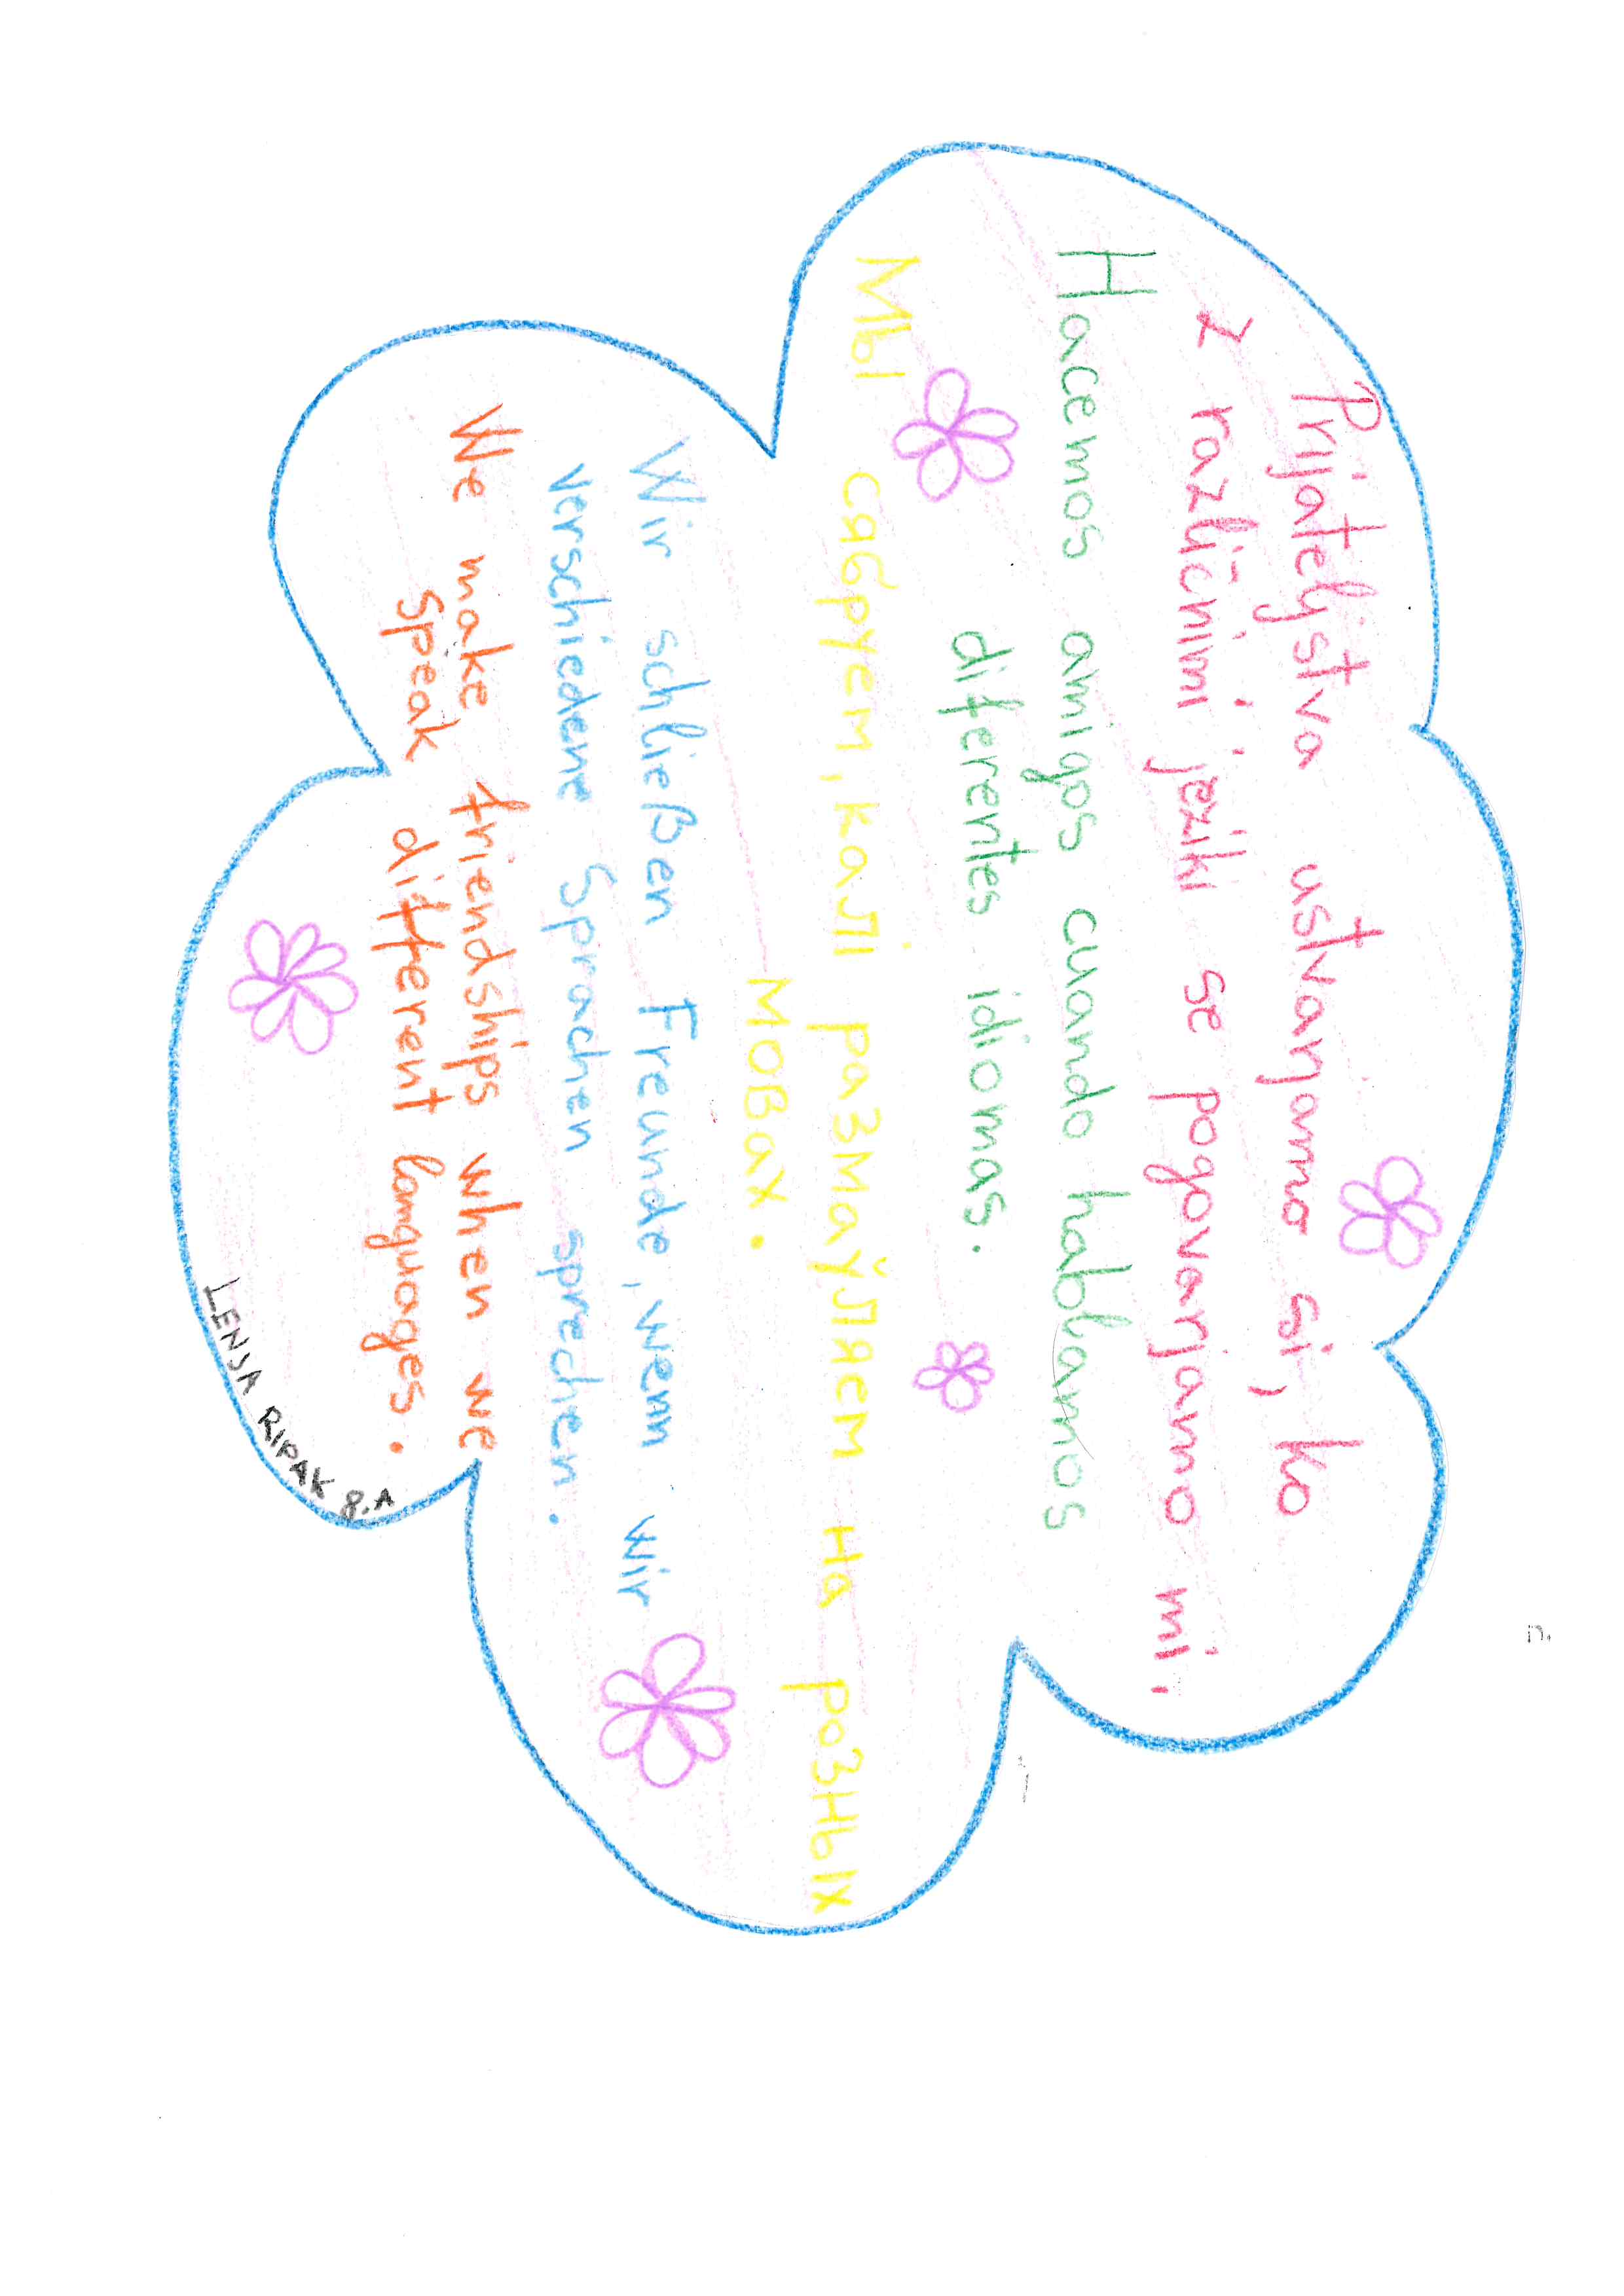 Prijateljstva ustvarjamo si, ko
z različnimi jeziki se pogovarjamo mi.
Hacemos amigos cuando hablamos
diferentes idiomas.
Мы сябруем, калі размаўляем на розных
мовах.
Wir schließen Freunde, wenn wir
verschiedene Sprachen sprechen.
We make friendships when we
speak different languages.
LENJA RIPAK 8.A